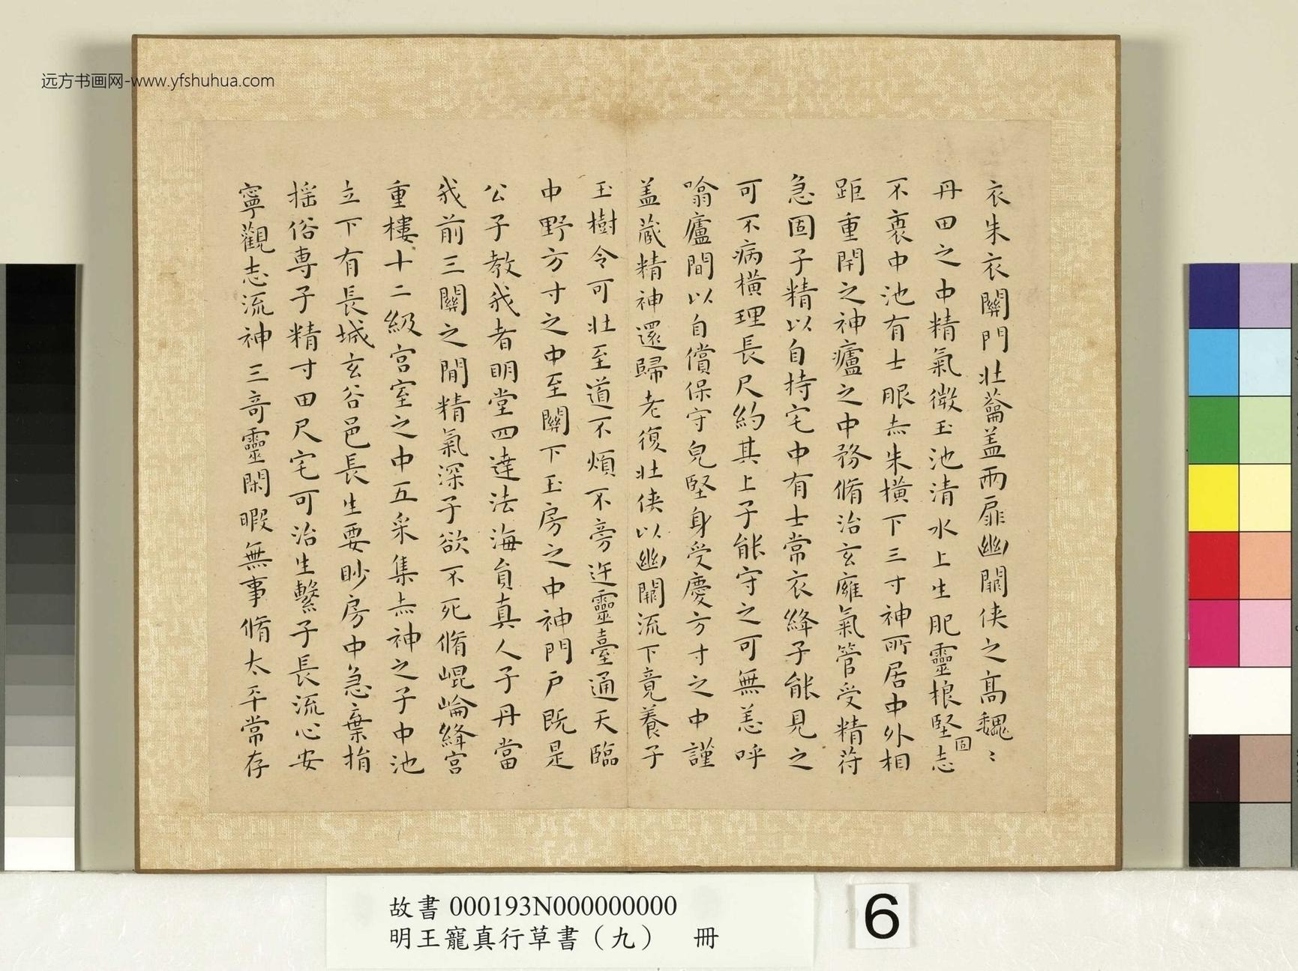 远方书画网-www.yfshuhua.com
衣朱衣關門壮蘥盖兩扉幽關侠之高魏〻
丹田之中精氣微玉池清水上生肥靈根堅固志
不衰中池有士服赤朱橫下三寸神所居中外相
距重閇之神廬之中務脩治玄廱氣管受精苻
急固子精以自持宅中有士常衣絳子能見之
可不病橫理長尺約其上子能守之可無恙呼
噏廬間以自償保守皃堅身受慶方寸之中謹
盖藏精神還歸老復壮侠以幽關流下竟養子
玉樹令可壮至道不煩不旁迕靈臺通天臨
中野方寸之中至關下玉房之中神門戶既是
公子教我者明堂四達法海員真人子丹當
我前三關之閒精氣深子欲不死脩崐崘絳宮
重樓十二級宮室之中五采集赤神之子中池
立下有長城玄谷邑長生要眇房中急棄捐
揺俗専子精寸田尺宅可治生繫子長流心安
寧觀志流神三竒靈閑暇無事脩太平常存
故書 000193N000000000
明王寵真行草書（九） 冊
6